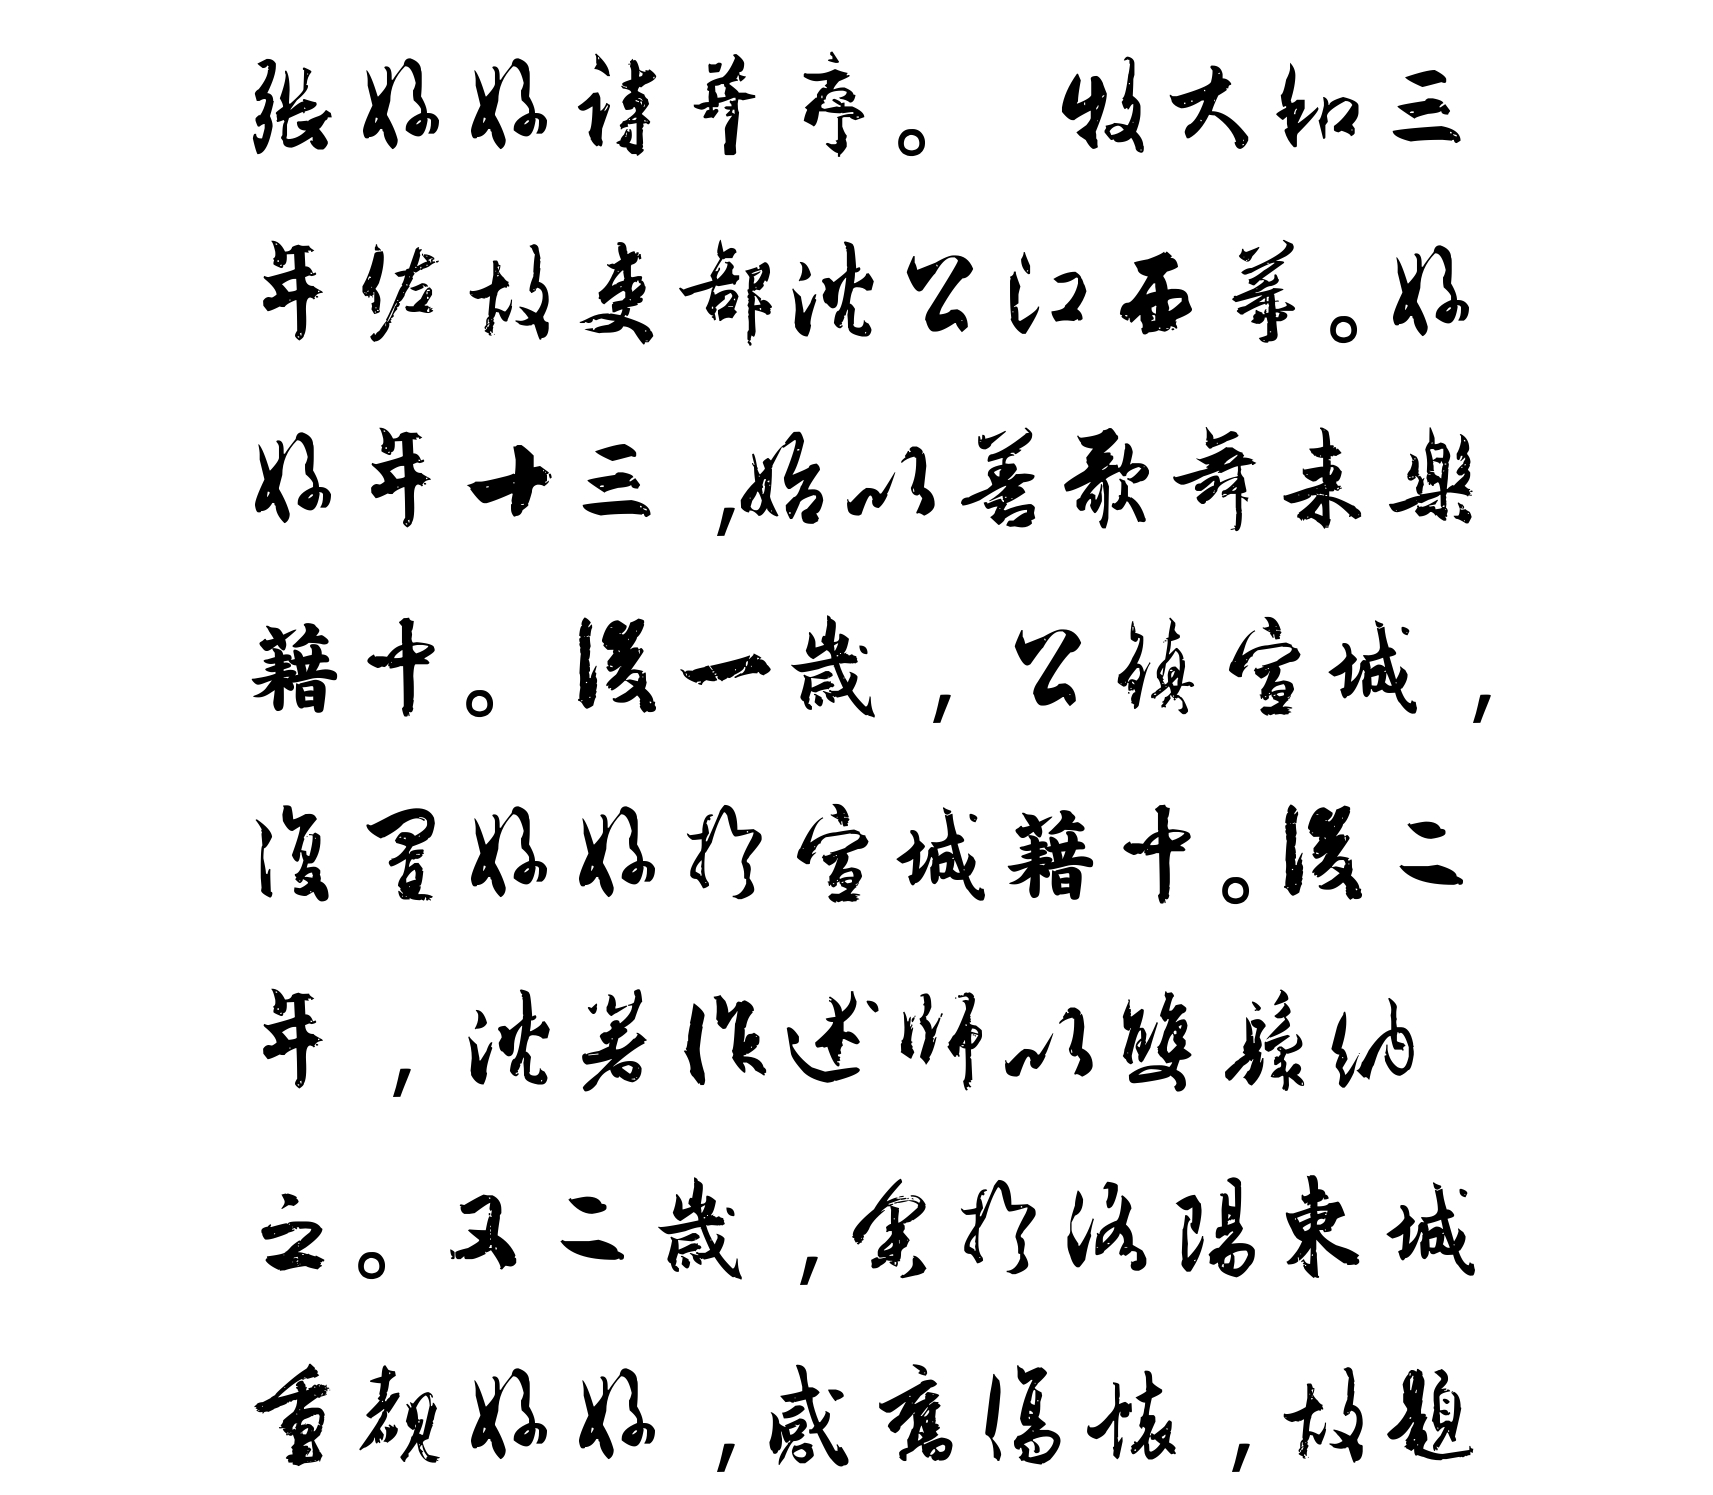 張好好詩并序。 牧大和三
年佐故吏部沈公江西幕。好
好年十三,始以善歌舞来樂
籍中。後一歲,公鎮宣城,
復置好好於宣城籍中。後二
年,沈著作述師以雙鬟納
之。又二歲,余於洛陽東城
重覩好好,感舊傷懷,故題